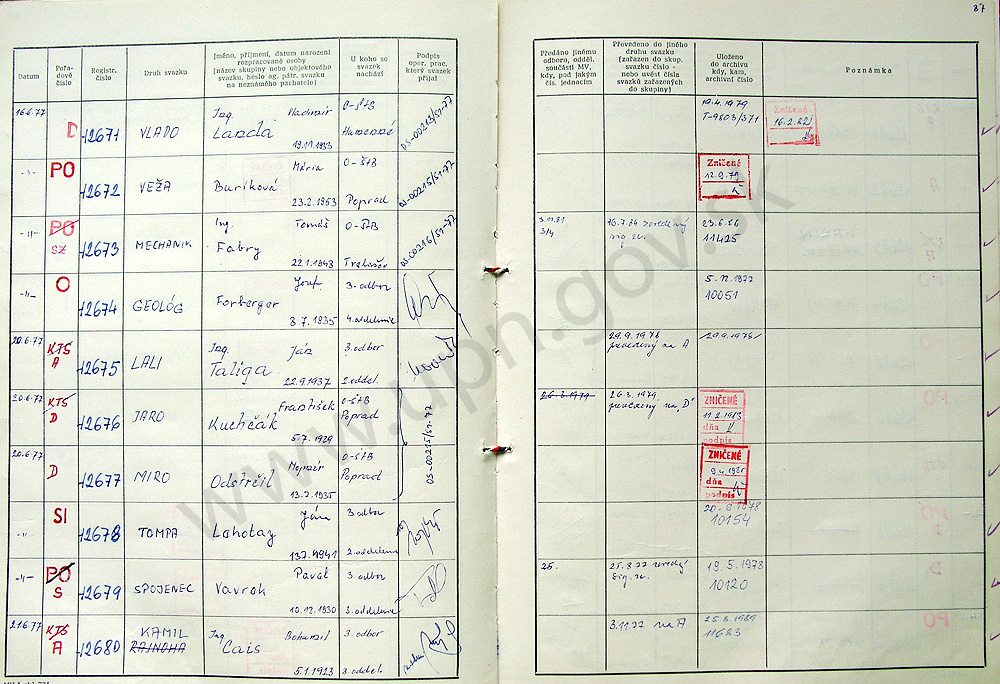 87
Datum
Pořa-
dové
číslo
Registr.
číslo
Druh svazku
Jméno, příjmení, datum narození
rozpracované osoby
(název skupiny nebo objektového
svazku, heslo ag. pátr. svazku
na neznámého pachatele)
U koho se
svazek
nachází
Podpis
oper. prac.
který svazek
přijal
Předáno jinému
odboru, odděl.
součásti MV,
kdy, pod jakým
čís. jednacím
Převedeno do jiného
druhu svazku
(zařazen do skup.
svazku číslo -
nebo uvést čísla
svazků zařazených
do skupiny)
Uloženo
do archivu
kdy, kam,
archivní číslo
Poznámka
16.6.77 D 12671 VLADO
Ing. Vladimír
Landa
19.11.1933
O-ŠtB
Humenné
OS-00215/S1-77
19.4.1979
T-9803/371
Zničené
16.2.82
-"- PO 12672 VEŽA
Mária
Buríková
23.2.1953
O-ŠtB
Poprad
OS-00215/S1-77
Zničené
12.9.79
-"- PO
SZ
12673 MECHANIK
Ing. Tomáš
Fabry
22.1.1943
O-ŠtB
Trebišov
OS-00216/S1-77
3.11.81
3/4
16.7.84
23.6.86
11425
-"- O 12674 GEOLÓG
Jozef
Forberger
3.7.1935
3. odbor
4. oddelenie
5.12.1977
10051
20.6.77 KTS
A
12675 LALI
Ing. Ján
Taliga
22.9.1937
3. odbor
2. oddel.
29.9.1978
prevedený na A
29.9.1978
20.6.77 KTS
D
12676 JARO
František
Kuchčák
5.7.1929
O-ŠtB
Poprad
OS-00215/S1-77
26.3.1979
26.3.1979
prevedený na "D"
ZNIČENÉ
11.2.1983
dňa
podpis
20.6.77 D 12677 MIRO
Odstrčil
13.2.1935
O-ŠtB
Poprad
ZNIČENÉ
dňa
podpis
-"- SI 12678 TOMPA
Ján
Lahotay
13.7.1941
3. odbor
2. oddelenie
10154
-"- PO
S
12679 SPOJENEC
Pavol
Vavrek
10.12.1930
3. odbor
3. oddelenie
25.
25.8.77
19.5.1978
10120
21.6.77 KTS
A
12680 KAMIL
RAJNOHA
Ing. Bohumil
Cais
5.1.1923
3. odbor
3. oddel.
3.11.77 na A
25.8.1989
11683
www.upn.gov.sk